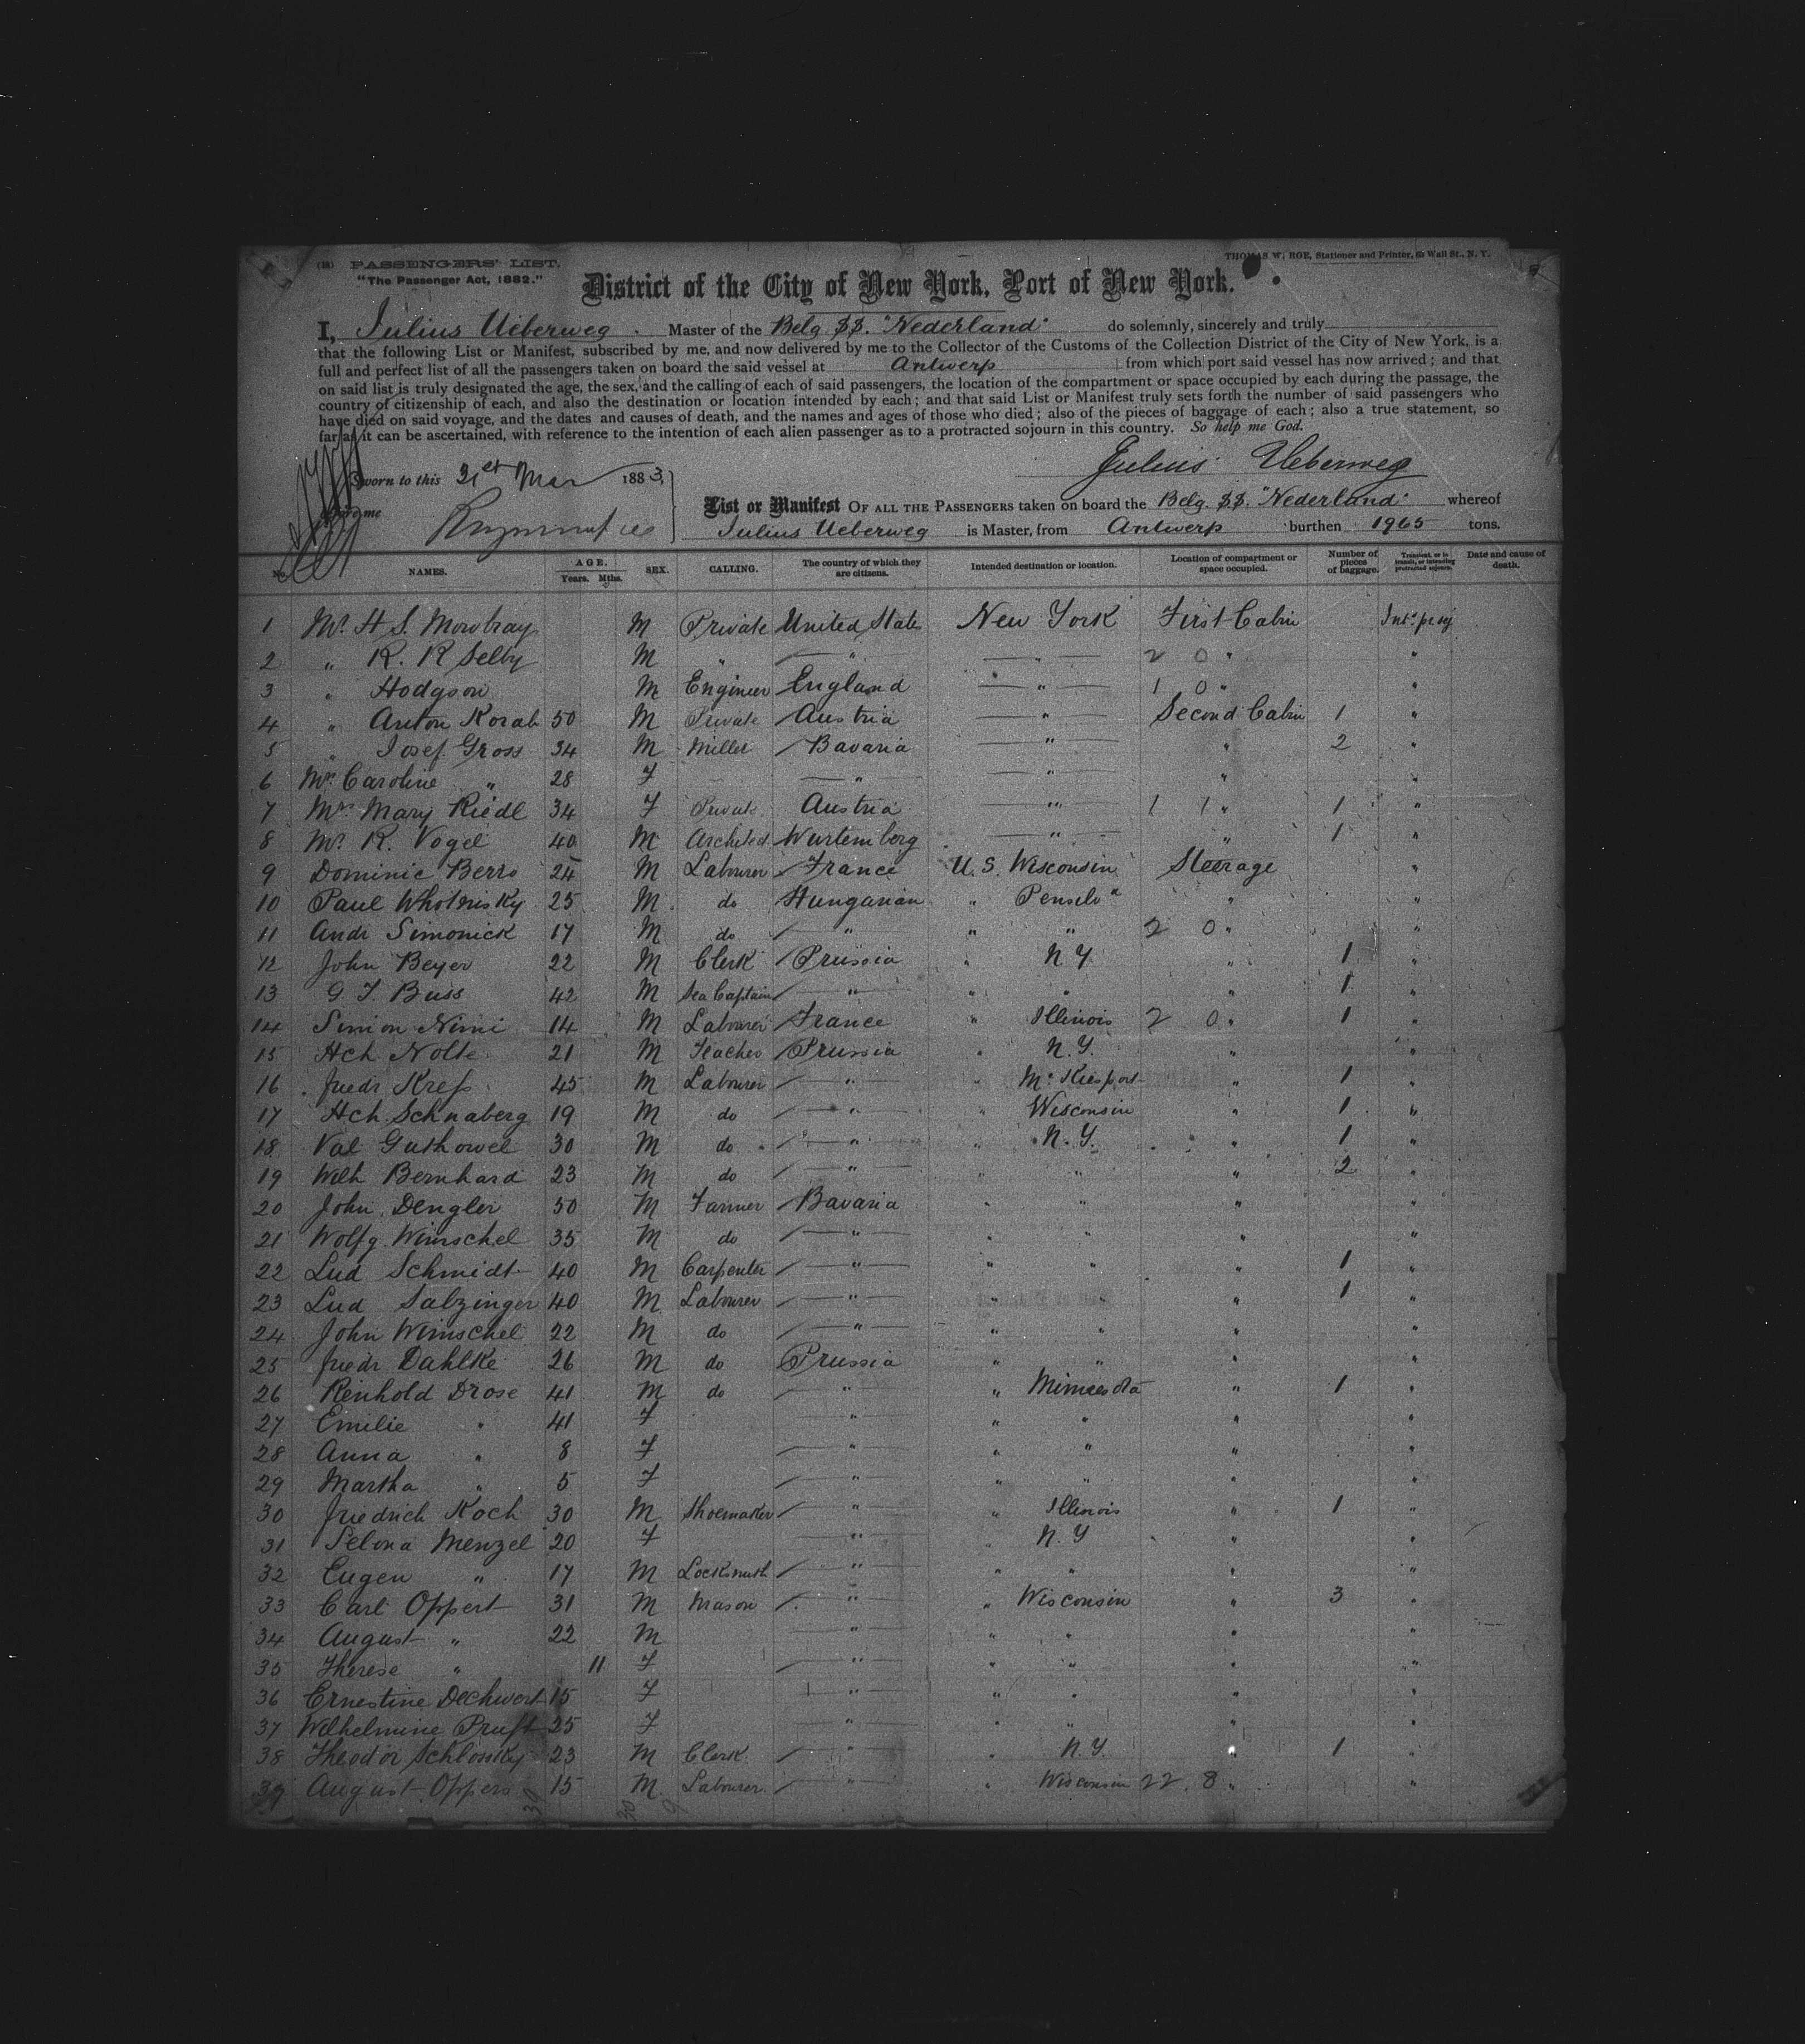 (B) PASSENGERS' LIST.
"The Passenger Act, 1882."
THOMAS W. ROE, Stationer and Printer, 80 Wall St., N. Y.
District of the City of New York, Port of New York.
I, Julius Ueberweg Master of the Belg. SS. "Nederland" do solemnly, sincerely and truly
that the following List or Manifest, subscribed by me, and now delivered by me to the Collector of the Customs of the Collection District of the City of New York, is a
full and perfect list of all the passengers taken on board the said vessel at Antwerp from which port said vessel has now arrived; and that
on said list is truly designated the age, the sex, and the calling of each of said passengers, the location of the compartment or space occupied by each during the passage, the
country of citizenship of each, and also the destination or location intended by each; and that said List or Manifest truly sets forth the number of said passengers who
have died on said voyage, and the dates and causes of death, and the names and ages of those who died; also of the pieces of baggage of each; also a true statement, so
far as it can be ascertained, with reference to the intention of each alien passenger as to a protracted sojourn in this country. So help me God.
Julius Ueberweg
Sworn to this 21st Mar 1883,
before me
List or Manifest OF ALL THE PASSENGERS taken on board the Belg. SS. "Nederland" whereof
Julius Ueberweg is Master, from Antwerp burthen 1965 tons.
No. NAMES. AGE. Years. Mths. SEX. CALLING. The country of which they are citizens. Intended destination or location. Location of compartment or space occupied. Number of pieces of baggage. Transient, or in transit, or intending protracted sojourn. Date and cause of death.
1 Mr. H S. Mowbray M Private United States New York First Cabin
2 " R. R Selby M " " " 2 0 " "
3 " Hodgson M Engineer England " 1 0 " "
4 " Anton Korab 50 M Private Austria " Second Cabin 1 "
5 " Josef Gross 34 M Miller Bavaria " " 2 "
6 Mrs Caroline " 28 F " " " "
7 Mrs Mary Riedl 34 F Private Austria " 1 1 " 1 "
8 Mr. R. Vogel 40 M Architect Wurtemberg " " 1 "
9 Dominic Berro 24 M Labourer France U. S. Wisconsin Steerage "
10 Paul Whotnisky 25 M do Hungarian " " "
11 Andr Simonick 17 M do " " " 2 0 " "
12 John Beyer 22 M Clerk Prussia " N Y " 1 "
13 G F. Buss 42 M Sea Captain " " " " 1 "
14 Simon Nimi 14 M Labourer France " Illinois 2 0 " 1 "
15 Hch Nolte 21 M Teacher Prussia " N. Y. " "
16 Friedr Kreß 45 M Labourer " " Mc Kiesport " 1 "
17 Hch. Schnaberg 19 M do " " Wisconsin " 1 "
18 Val Guthowel 30 M do " " N. Y. " 1 "
19 Wilh Bernhard 23 M do " " " " 2 "
20 John Dengler 50 M Farmer Bavaria " " " "
21 Wolfg. Winschel 35 M do " " " " "
22 Lud Schmidt 40 M Carpenter " " " " 1 "
23 Lud Salzinger 40 M Labourer " " " " 1 "
24 John Winschel 22 M do " " " " "
25 Friedr Dahlke 26 M do Prussia " " " "
26 Reinhold Drose 41 M do " " Minnesota " 1 "
27 Emilie " 41 F " " " " "
28 Anna " 8 F " " " " "
29 Martha " 5 F " " " " "
30 Friedrich Koch 30 M Shoemaker " " Illinois " 1 "
31 Selma Menzel 20 F " " N. Y " "
32 Eugen " 17 M Locksmith " " " " "
33 Carl Oppert 31 M Mason " " Wisconsin " 3 "
34 August " 22 M " " " " "
35 Therese " 11 F " " " " "
36 Ernestine Dechwert 15 F " " " " "
37 Wilhelmine Prust 25 F " " " " "
38 Theodor Schlossky 23 M Clerk " " N. Y. " 1 "
39 August Oppers 15 M Labourer " " Wisconsin 22 8 " "
39 30 9